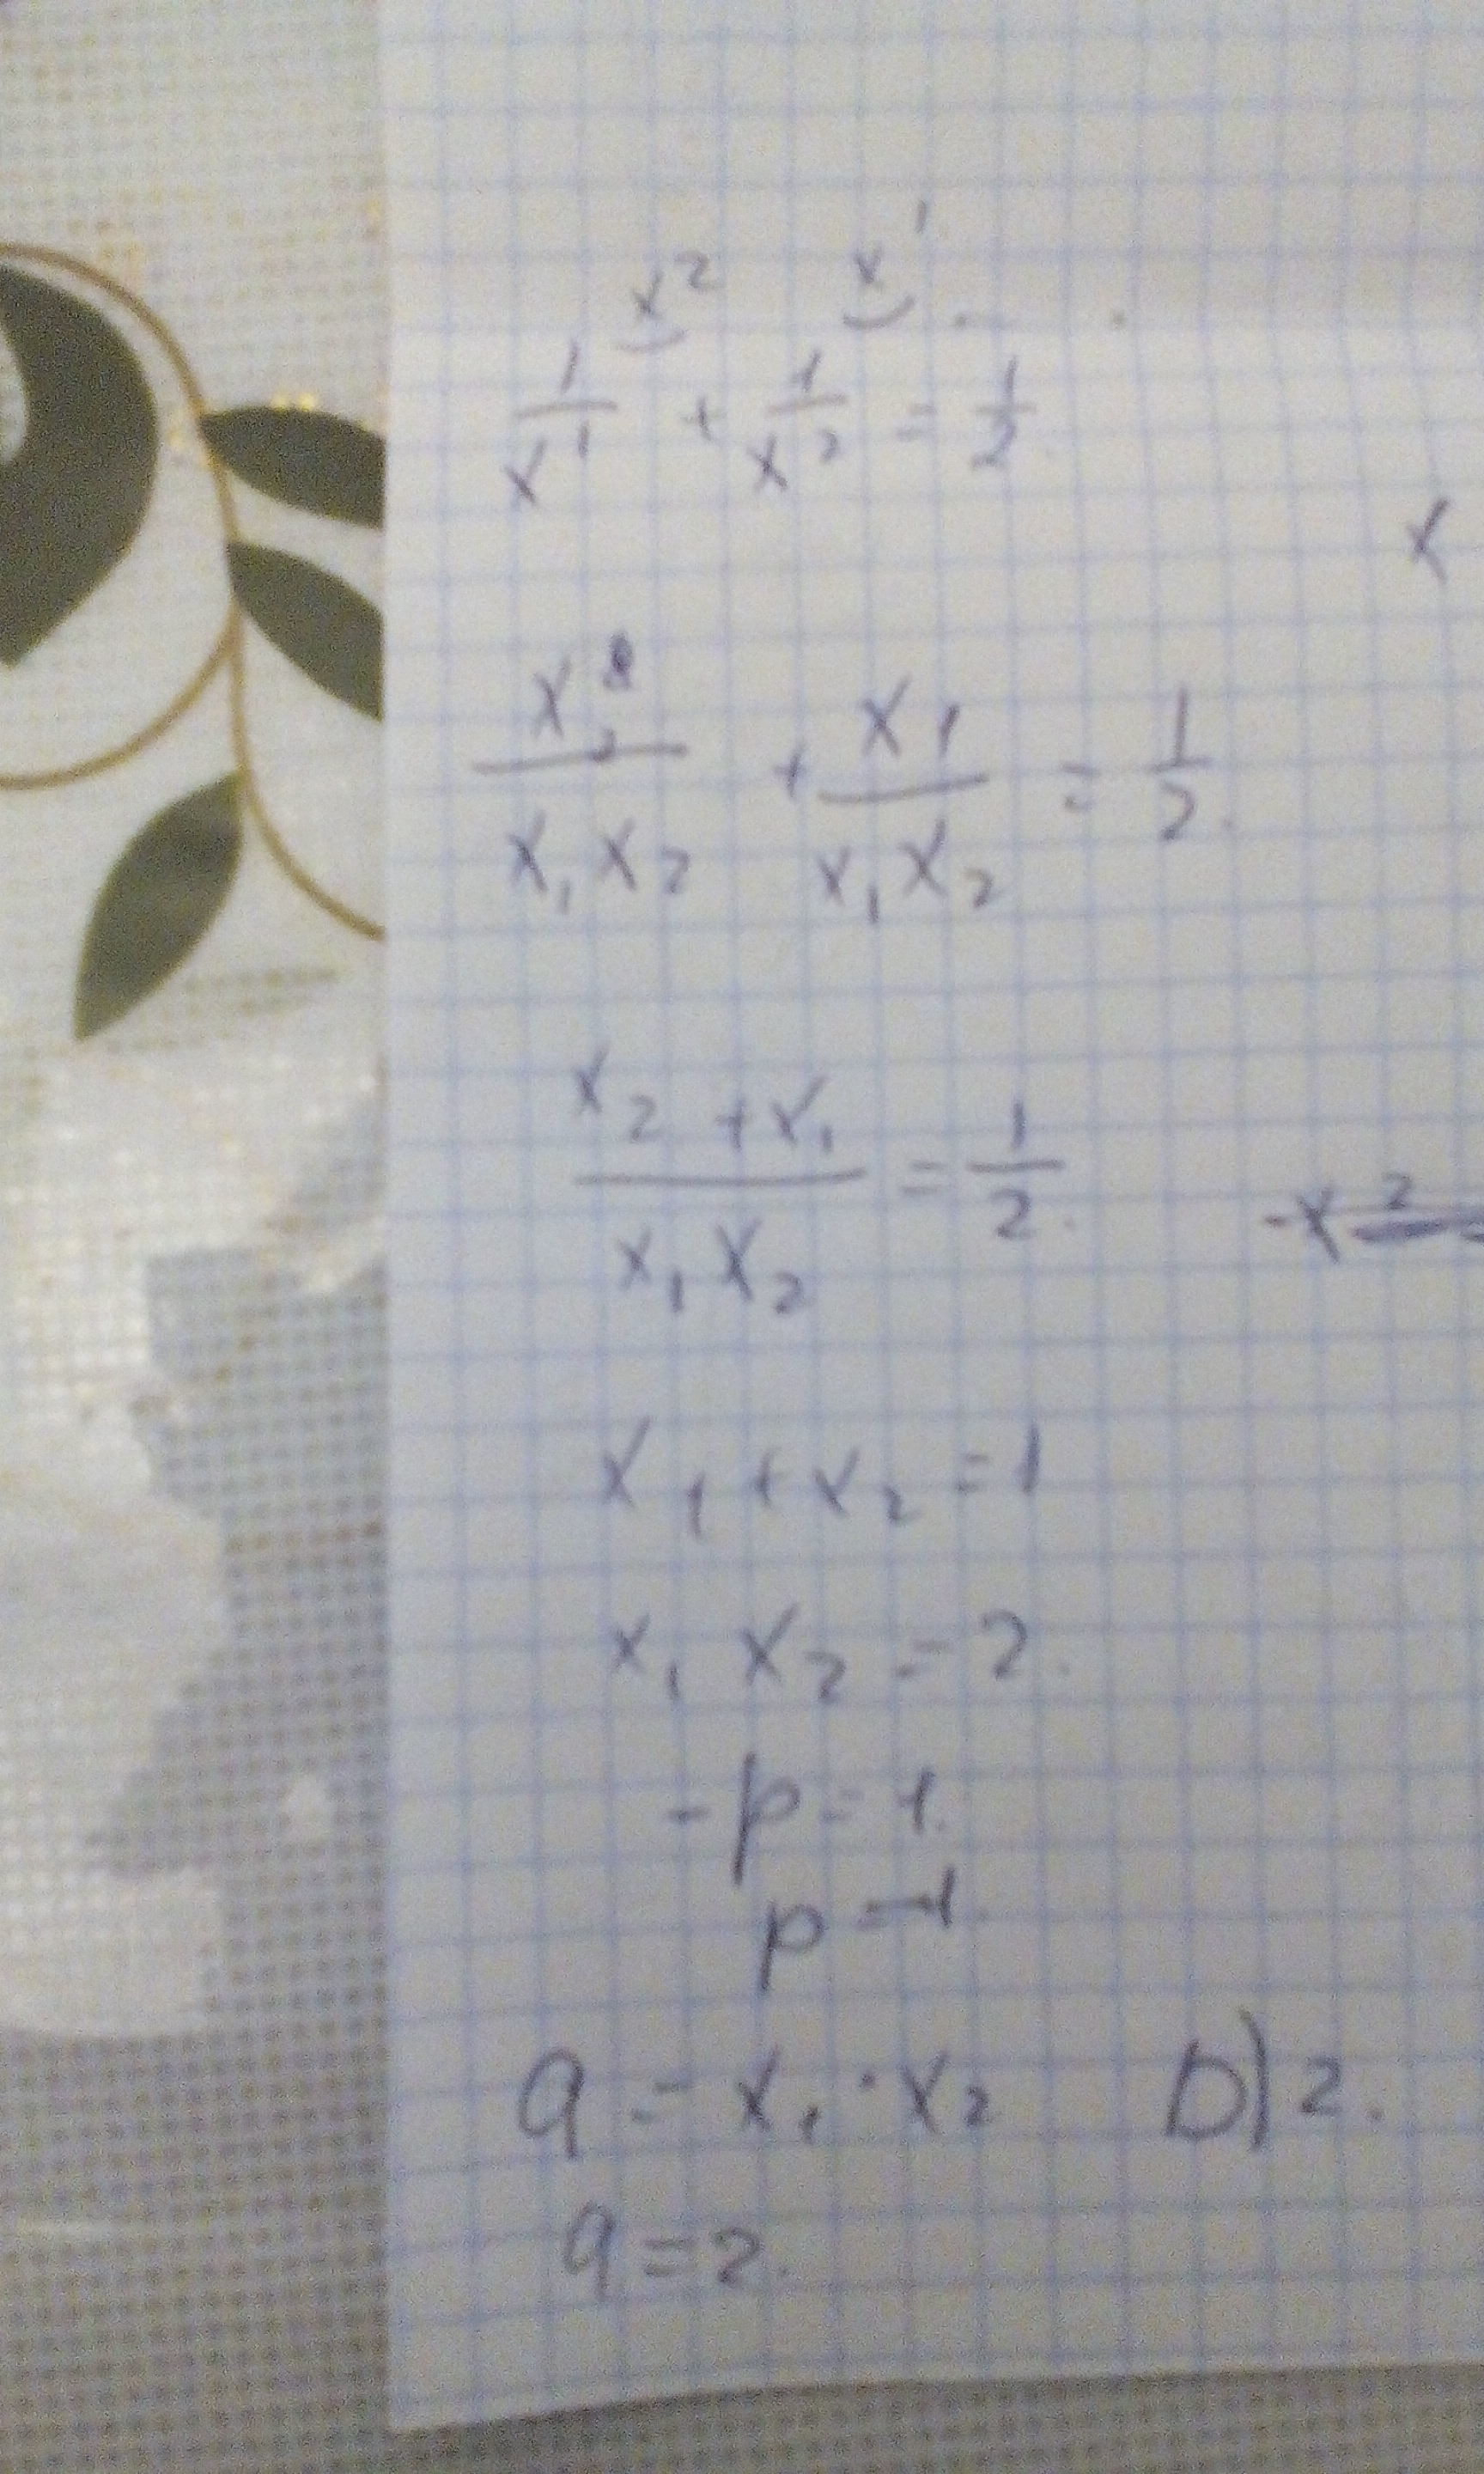 x² x¹
1/x¹ + 1/x² = 1/2.
x
x₂/x₁x₂ + x₁/x₁x₂ = 1/2.
x₂+x₁/x₁x₂ = 1/2.
-x²
x₁+x₂=1
x₁x₂=2.
-p=1.
p=-1
q=x₁·x₂ D)2.
q=2.